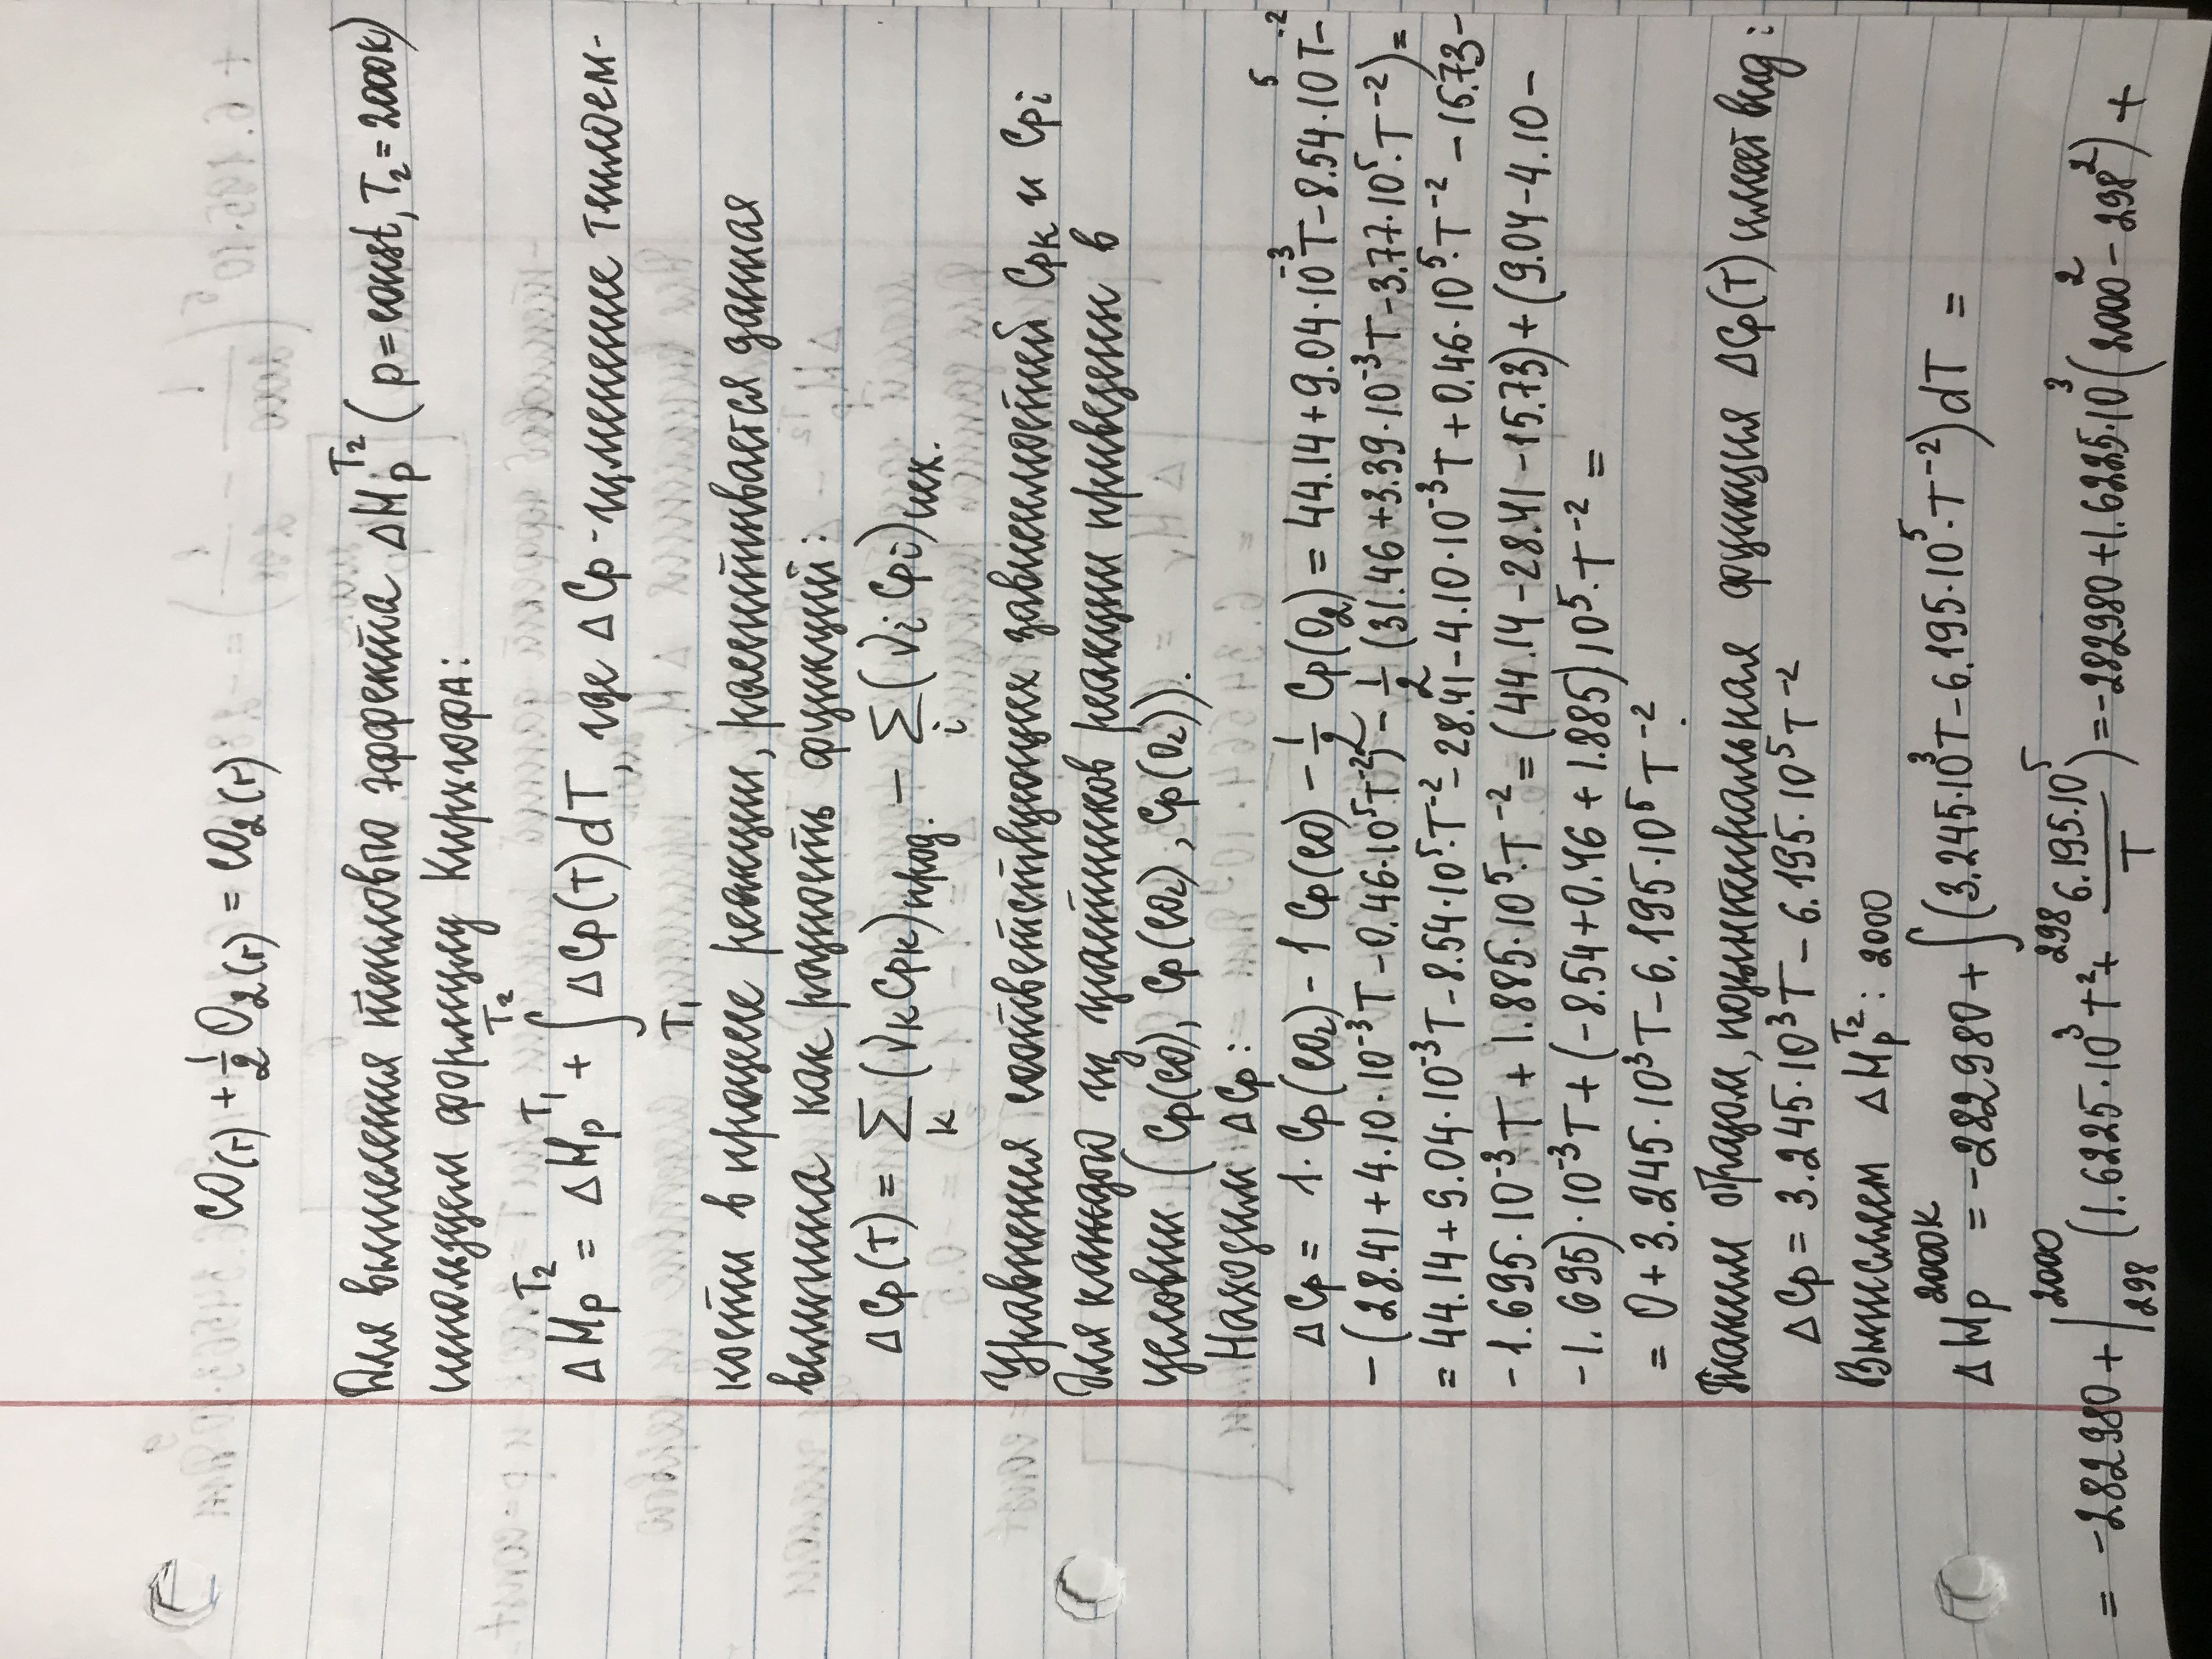 CO(г) + 1/2 O₂(г) = CO₂(г)
Для вычисления теплового эффекта ΔHₚᵀ² (p = const, T₂ = 2000K)
используем формулу Кирхгофа:
ΔHₚᵀ² = ΔHₚᵀ¹ + ∫ₜ₁ᵀ² ΔCp(T)dT, где ΔCp - изменение теплоем-
кости в процессе реакции, рассчитывается данная
величина как разность функций:
ΔCp(T) = Σₖ (νₖ Cpₖ)прод. − Σᵢ (νᵢ Cpᵢ)исх.
Уравнения соответствующих зависимостей Cpₖ и Cpᵢ
для каждого из участников реакции приведены в
условии (Cp(CO), Cp(CO₂), Cp(O₂)).
Находим ΔCp:
ΔCp = 1·Cp(CO₂) − 1 Cp(CO) − 1/2 Cp(O₂) = 44.14 + 9.04·10⁻³T − 8.54·10⁵T⁻² −
− (28.41 + 4.10·10⁻³T − 0.46·10⁵T⁻²) − 1/2 (31.46 + 3.39·10⁻³T − 3.77·10⁵·T⁻²) =
= 44.14 + 9.04·10⁻³T − 8.54·10⁵·T⁻² − 28.41 − 4.10·10⁻³T + 0.46·10⁵·T⁻² − 15.73 −
− 1.695·10⁻³T + 1.885·10⁵·T⁻² = (44.14 − 28.41 − 15.73) + (9.04 − 4.10 −
− 1.695)·10⁻³T + (−8.54 + 0.46 + 1.885)10⁵·T⁻² =
= 0 + 3.245·10³T − 6.195·10⁵T⁻².
Таким образом, подынтегральная функция ΔCp(T) имеет вид:
ΔCp = 3.245·10³T − 6.195·10⁵T⁻²
Вычисляем ΔHₚᵀ²:
ΔHₚ²⁰⁰⁰ᴷ = −282980 + ∫₂₉₈²⁰⁰⁰ (3.245·10³T − 6.195·10⁵·T⁻²)dT =
= −282980 + |₂₉₈²⁰⁰⁰ (1.6225·10³T² + 6.195·10⁵/T) = −282980 + 1.6225·10³(2000² − 298²) +